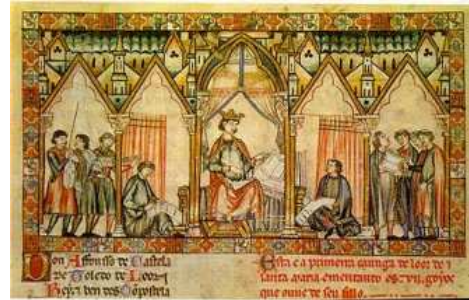 Don Affonso de Castela
de Toledo de Leon
Rey e ben des Conpostela
Esta e a primeira cantiga de loor de
santa maria ementando os. vii. goyos
que ouue de seu fillo.